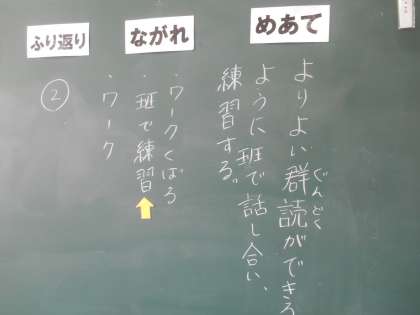 めあて
よりよい群読ができる
ぐんどく
ように班で話し合い、
練習する。
ながれ
・ワークくばる
・班で練習
・ワーク
ふり返り
②